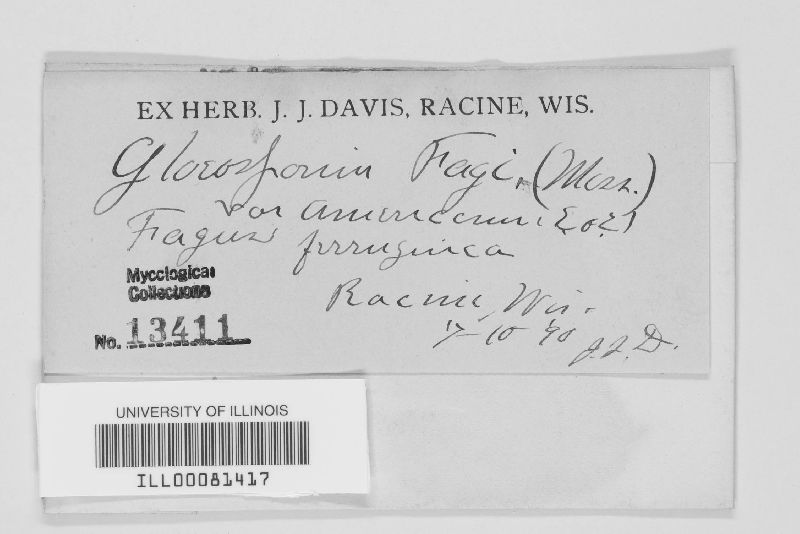 EX HERB. J. J. DAVIS, RACINE, WIS.
Gloeosporium Fagi, (
var americanum
Fagus ferruginea
Mycological
Collections
No. 13411
Racine, Wis.
7-10 '90 J.J.D.
UNIVERSITY OF ILLINOIS
ILL00081417